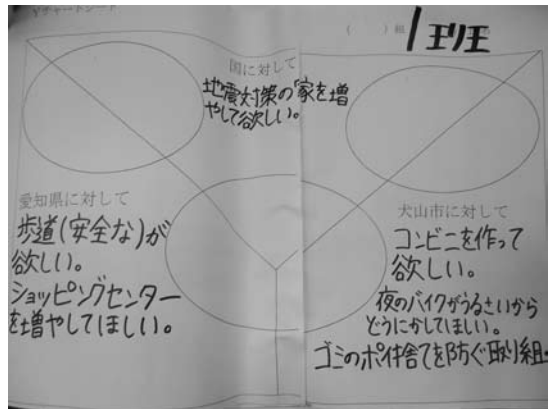 Yチャートシート
( )組 1班
国に対して
地震対策の家を増
やして欲しい。
愛知県に対して
歩道(安全な)が
欲しい。
ショッピングセンター
を増やしてほしい。
犬山市に対して
コンビニを作って
欲しい。
夜のバイクがうるさいから
どうにかしてほしい。
ゴミのポイ捨てを防ぐ取り組